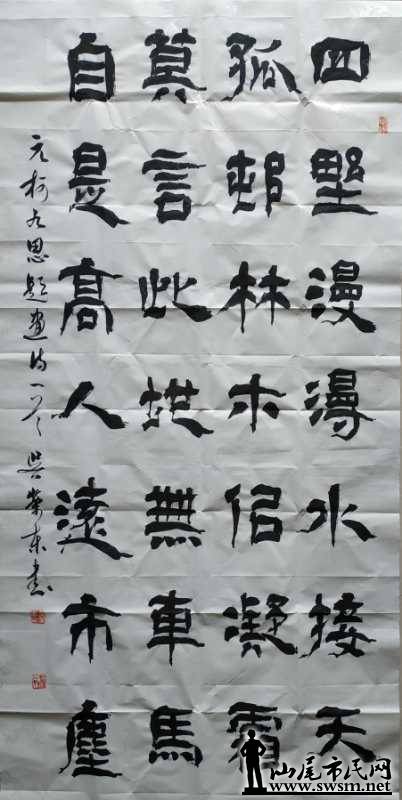 四野漫漫水接天
孤邨林木佀凝霜
莫言此地無車馬
自是高人遠市塵
元柯九思題畫詩一首 吳 東書
汕尾市民网
www.swsm.net